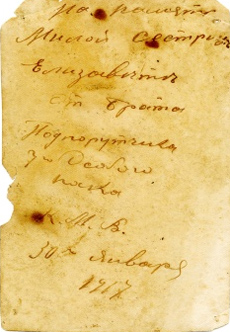 На память
Милой сестрице
Елизавете
от брата
Подпоручика
7го Особого
полка
К. М. В.
30го Января
1917